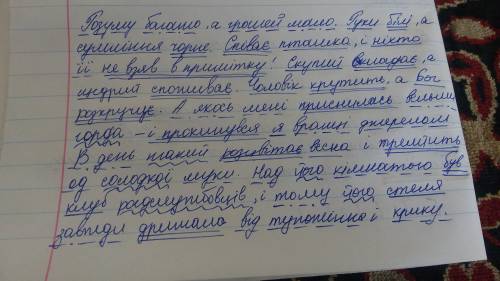 Розуму багато, а грошей мало. Руки білі, а
сумління чорне. Співає пташка, і ніхто
її не взяв в примітку! Скупий складає, а
щедрий споживає. Чоловік крутить, а Бог
розкручує. А якось мені приснилась вельми
горда – і прокинувся я вранці джерелом.
В день такий розквітає весна і тремтить
од солодкої муки. Над його кімнатою був
клуб радслужбовців, і тому його стеля
завжди дрижала від тупотіння і крику.